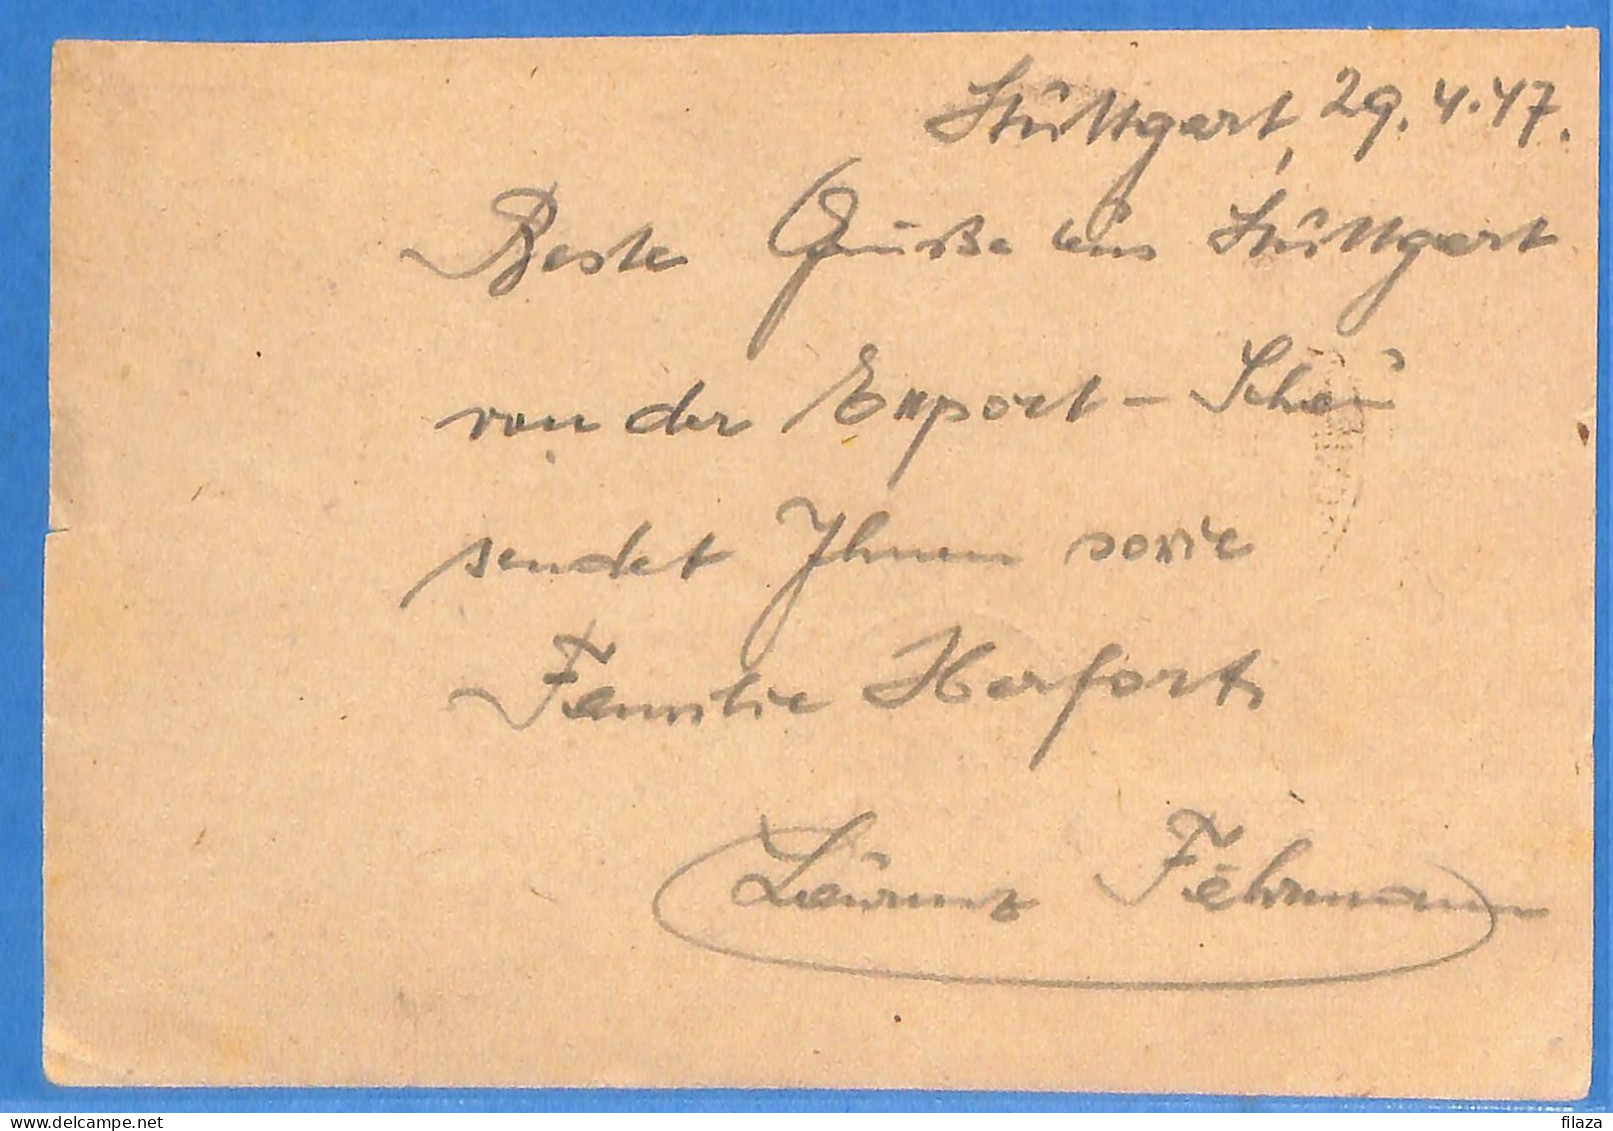 Stuttgart, 29.4.47.
Beste Grüße aus Stuttgart
von der Export-Schau
sendet Ihnen sowie
Familie Herfort
Laurenz Fehrmann
filaza
delcampe.net